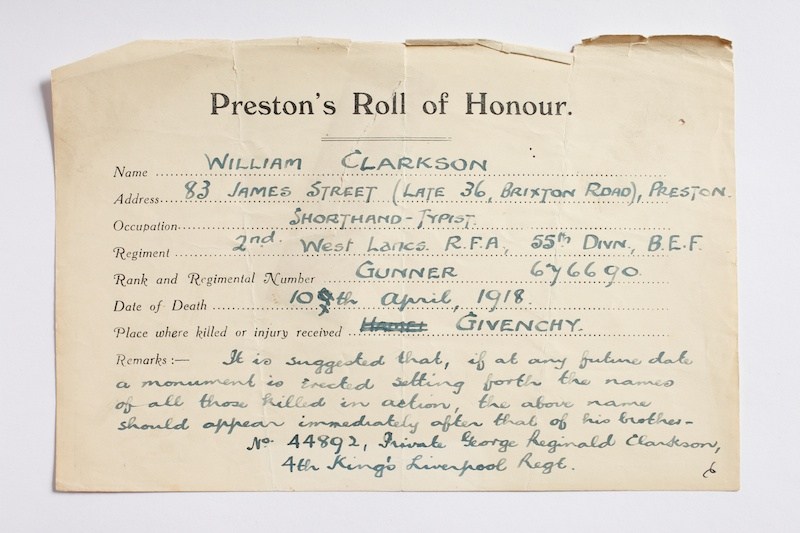 Preston's Roll of Honour.
Name WILLIAM CLARKSON
Address 83 JAMES STREET (LATE 36, BRIXTON ROAD), PRESTON.
Occupation SHORTHAND-TYPIST.
Regiment 2nd. West Lancs. R.F.A., 55th DIVN., B.E.F.
Rank and Regimental Number GUNNER 676690.
Date of Death 10th April, 1918.
Place where killed or injury received GIVENCHY.
Remarks:— It is suggested that, if at any future date
a monument is erected setting forth the names
of all those killed in action, the above name
should appear immediately after that of his brother-
No. 44892, Private George Reginald Clarkson,
4th King's Liverpool Regt.
6